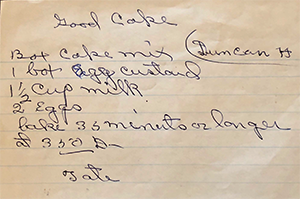 Good Cake
Box Cake mix (Duncan H
1 box Egg custard
1 1/2 Cup milk
2 Eggs
bake 35 minuts or longer
350
Tate